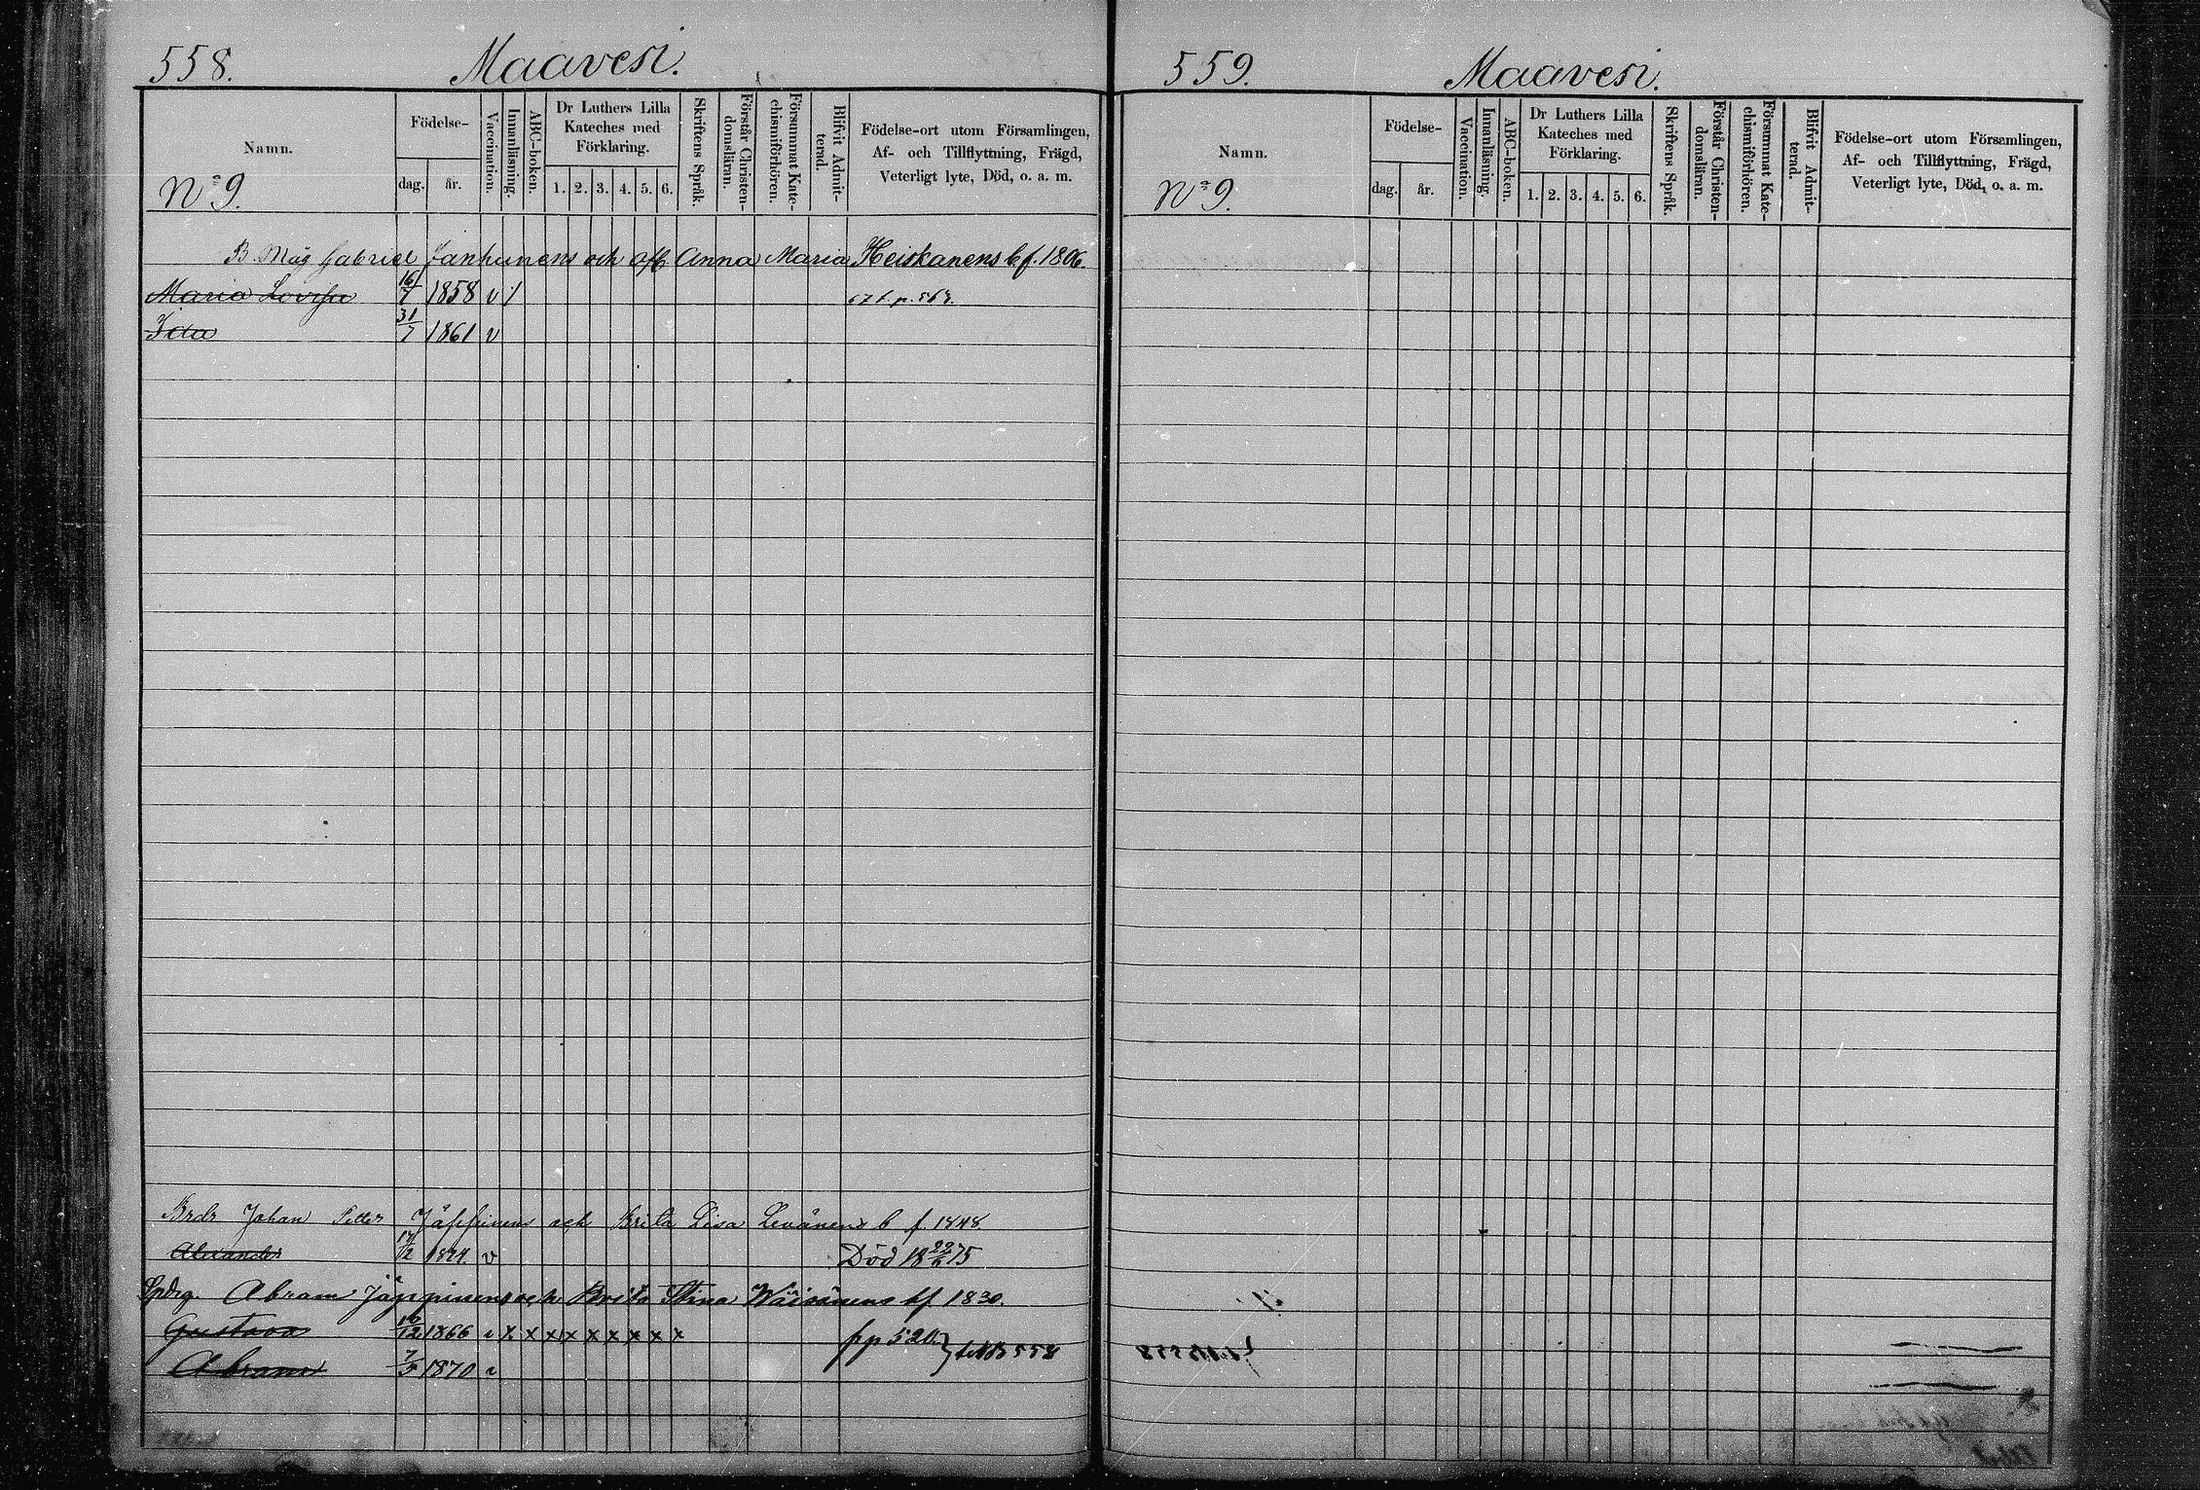 558. Maavesi.
Namn.
Födelse-
dag. år.
Vaccination.
Innanläsning.
ABC-boken.
Dr Luthers Lilla
Kateches med
Förklaring.
1. 2. 3. 4. 5. 6.
Skriftens Språk.
Förstår Christen-
domsläran.
Försummat Kate-
chismiförhören.
Blifvit Admit-
terad.
Födelse-ort utom Församlingen,
Af- och Tillflyttning, Frägd,
Veterligt lyte, Död, o. a. m.
No 9.
B. Måg Gabriel Janhunens och afl. Anna Maria Heiskanens b. f. 1806.
Maria Lovisa 16/7 1858 v /
Ida 31/7 1861 v
Brdr Johan Petter Jäppinens och Brita Lisa Levänens b f. 1848.
Alexander 17/2 1874. v Död 18 22/6 75
Spdrg. Abram Jäppinens och Brita Stina Wäisänens b f 1830.
Gustava 16/12 1866 v x x x x x x x x x fr p 520
Abram 7/5 1870 v 558
559. Maavesi.
Namn.
Födelse-
dag. år.
Vaccination.
Innanläsning.
ABC-boken.
Dr Luthers Lilla
Kateches med
Förklaring.
1. 2. 3. 4. 5. 6.
Skriftens Språk.
Förstår Christen-
domsläran.
Försummat Kate-
chismiförhören.
Blifvit Admit-
terad.
Födelse-ort utom Församlingen,
Af- och Tillflyttning, Frägd,
Veterligt lyte, Död, o. a. m.
No 9.